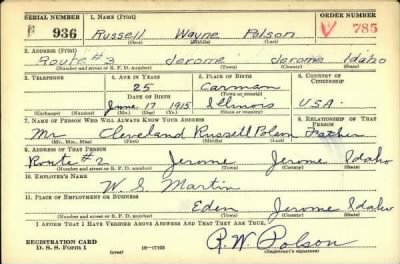 SERIAL NUMBER 1. NAME (Print) ORDER NUMBER
936 Russell Wayne Polson V 785
(First) (Middle) (Last)
2. ADDRESS (Print)
Route #3 Jerome Jerome Idaho
(Number and street or R. F. D. number) (Town) (County) (State)
3. TELEPHONE 4. AGE IN YEARS 5. PLACE OF BIRTH 6. COUNTRY OF CITIZENSHIP
25 Carman
DATE OF BIRTH (Town or county)
June 17 1915 Illinois U.S.A.
(Exchange) (Number) (Mo.) (Day) (Yr.) (State or country)
7. NAME OF PERSON WHO WILL ALWAYS KNOW YOUR ADDRESS 8. RELATIONSHIP OF THAT PERSON
Mr Cleveland Russell Polson Father
(Mr., Mrs., Miss) (First) (Middle) (Last)
9. ADDRESS OF THAT PERSON
Route #2 Jerome Jerome Idaho
(Number and street or R. F. D. number) (Town) (County) (State)
10. EMPLOYER'S NAME
W. S. Martin
11. PLACE OF EMPLOYMENT OR BUSINESS
Eden Jerome Idaho
(Number and street or R. F. D. number) (Town) (County) (State)
I AFFIRM THAT I HAVE VERIFIED ABOVE ANSWERS AND THAT THEY ARE TRUE.
REGISTRATION CARD R. W. Polson
D. S. S. Form 1 (over) 16-17105 (Registrant's signature)